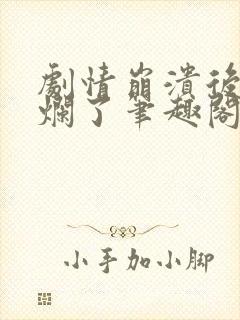 劇情崩潰後
爛了筆趣閣
小手加小脚